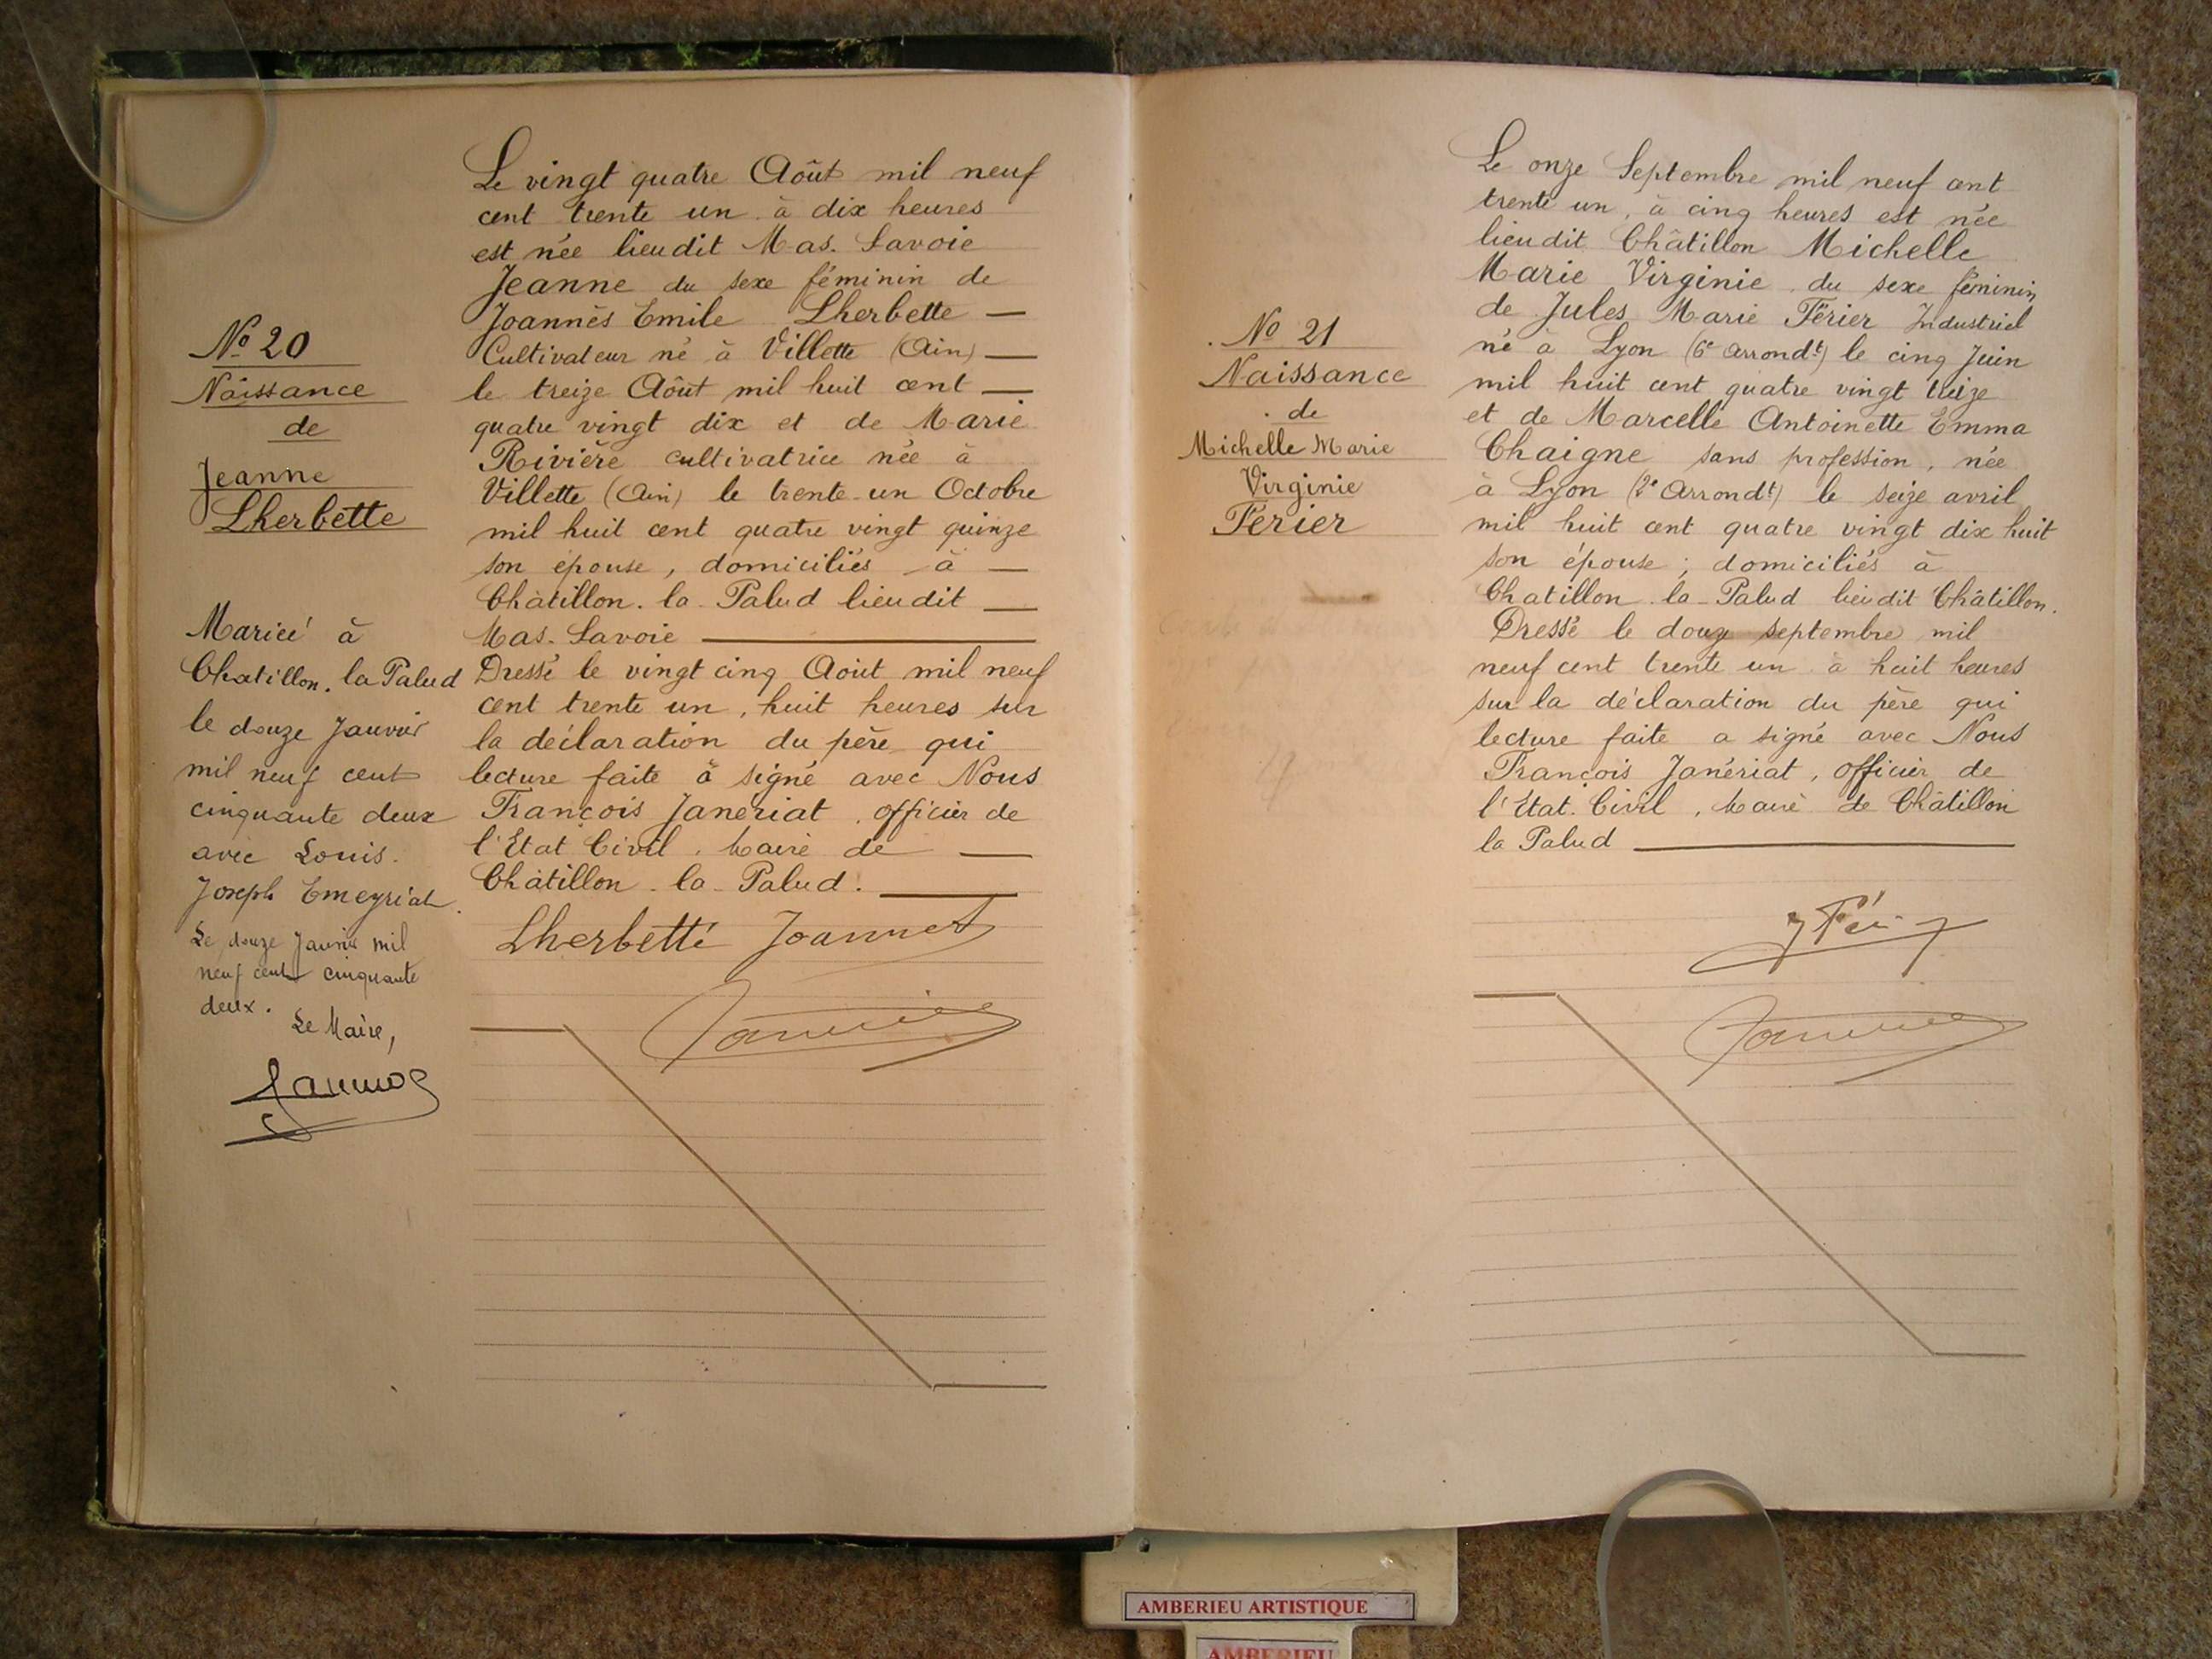 Nº 20
Naissance
de
Jeanne
Lherbette
Mariée à
Chatillon. la Palud
le douze Janvier
mil neuf cent
cinquante deux
avec Louis.
Joseph Emeyriat.
Le douze Janvier mil
neuf cent cinquante
deux.
Le Maire,
Le vingt quatre Août mil neuf
cent trente un à dix heures
est née lieudit Mas. Savoie
Jeanne du sexe féminin de
Joannès Emile Lherbette —
Cultivateur né à Villette (Ain) —
le treize Août mil huit cent —
quatre vingt dix et de Marie
Rivière cultivatrice née à
Villette (Ain) le trente-un Octobre
mil huit cent quatre vingt quinze
son épouse, domiciliés à —
Châtillon. la. Palud lieudit —
Mas. Savoie —
Dressé le vingt cinq Août mil neuf
cent trente un, huit heures sur
la déclaration du père qui
lecture faite à signé avec Nous
François Janériat, officier de
l'Etat Civil. Maire de —
Châtillon. la. Palud. —
Lherbette Joannes
Nº 21
Naissance
de
Michelle Marie
Virginie
Férier
Le onze Septembre mil neuf cent
trente un, à cinq heures est née
lieudit Châtillon Michelle
Marie Virginie du sexe féminin
de Jules Marie Férier Industriel
né à Lyon (6e arrondt) le cinq Juin
mil huit cent quatre vingt treize
et de Marcelle Antoinette Emma
Chaigne sans profession, née
à Lyon (2e Arrondt) le seize avril
mil huit cent quatre vingt dix huit
son épouse; domiciliés à
Chatillon. la - Palud lieudit Châtillon.
Dressé le douze septembre mil
neuf cent trente un à huit heures
sur la déclaration du père qui
lecture faite a signé avec Nous
François Janériat, officier de
l'Etat. Civil, Maire de Châtillon
la Palud —
AMBERIEU ARTISTIQUE
AMBERIEU